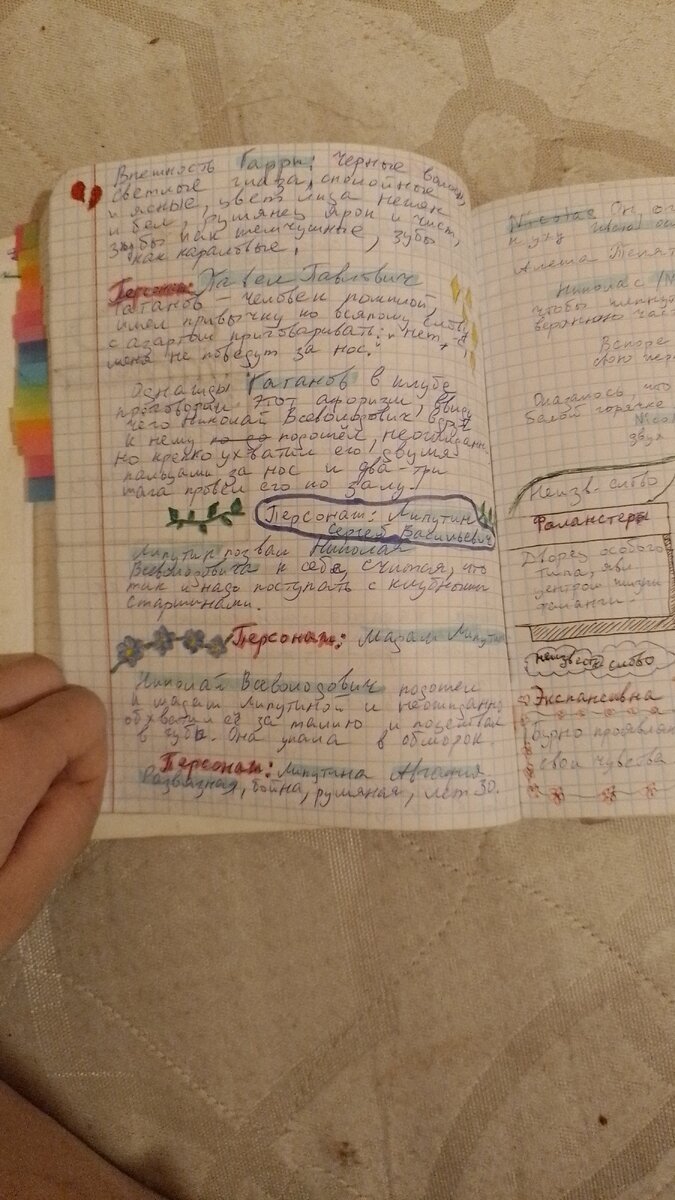 Внешность Гарри: Черные волосы,
светлые глаза, спокойные
и ясные, цвет лица нежен
и бел, румянец ярок и чист,
зубы как жемчужные, зубы
как каралловые.
Персонаж: Павел Павлович
Гаганов – человек пожилой,
имел привычку ко всякому слову
с азартом приговаривать: "нет,
меня не поведут за нос."
Однажды Гаганов в клубе
проговорил этот афоризм, ввиду
чего Николай Всеволодович вдруг
к нему подошёл, неожиданно
но крепко ухватил его двумя
пальцами за нос и два-три
шага провёл его по залу.
Персонаж: Липутин
Сергей Васильевич
Липутин позвал Николая
Всеволодовича к себе, считая, что
так и надо поступать с клубными
старшинами.
Персонаж: Мадам Липутин
Николай Всеволодович подошел
к мадам Липутиной и неожиданно
обхватил её за талию и поцеловал
в губы. Она упала в обморок.
Персонаж: Липутина Агафия
Развязная, бойка, румяная, лет 30.
Nicolas Он, о
к уху
Алеша Телят
Николас
чтобы шепнут
верхнюю част
Вскоре
свою пер
Оказалось что
белой горячке
звуя
Неизв. слово
Фаланстеры
Дворец особого
типа, явл.
центром жизни
неизвестн слово
Экспансивна
Бурно проявлян
свои чувства